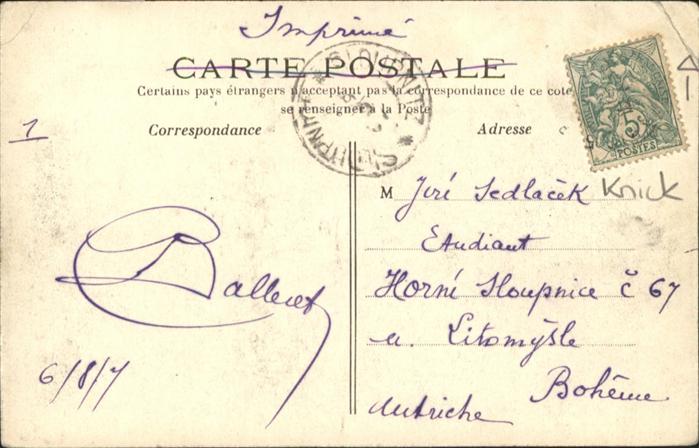 Imprimé
CARTE POSTALE
Certains pays étrangers n'acceptant pas la correspondance de ce coté
se renseigner à la Poste
Correspondance
Adresse
5
POSTES
1
Knick
M Jiří Sedláček
Etudiant
Horní Sloupnice č 67
u. Litomyšle
Bohême
Autriche
6/8/7